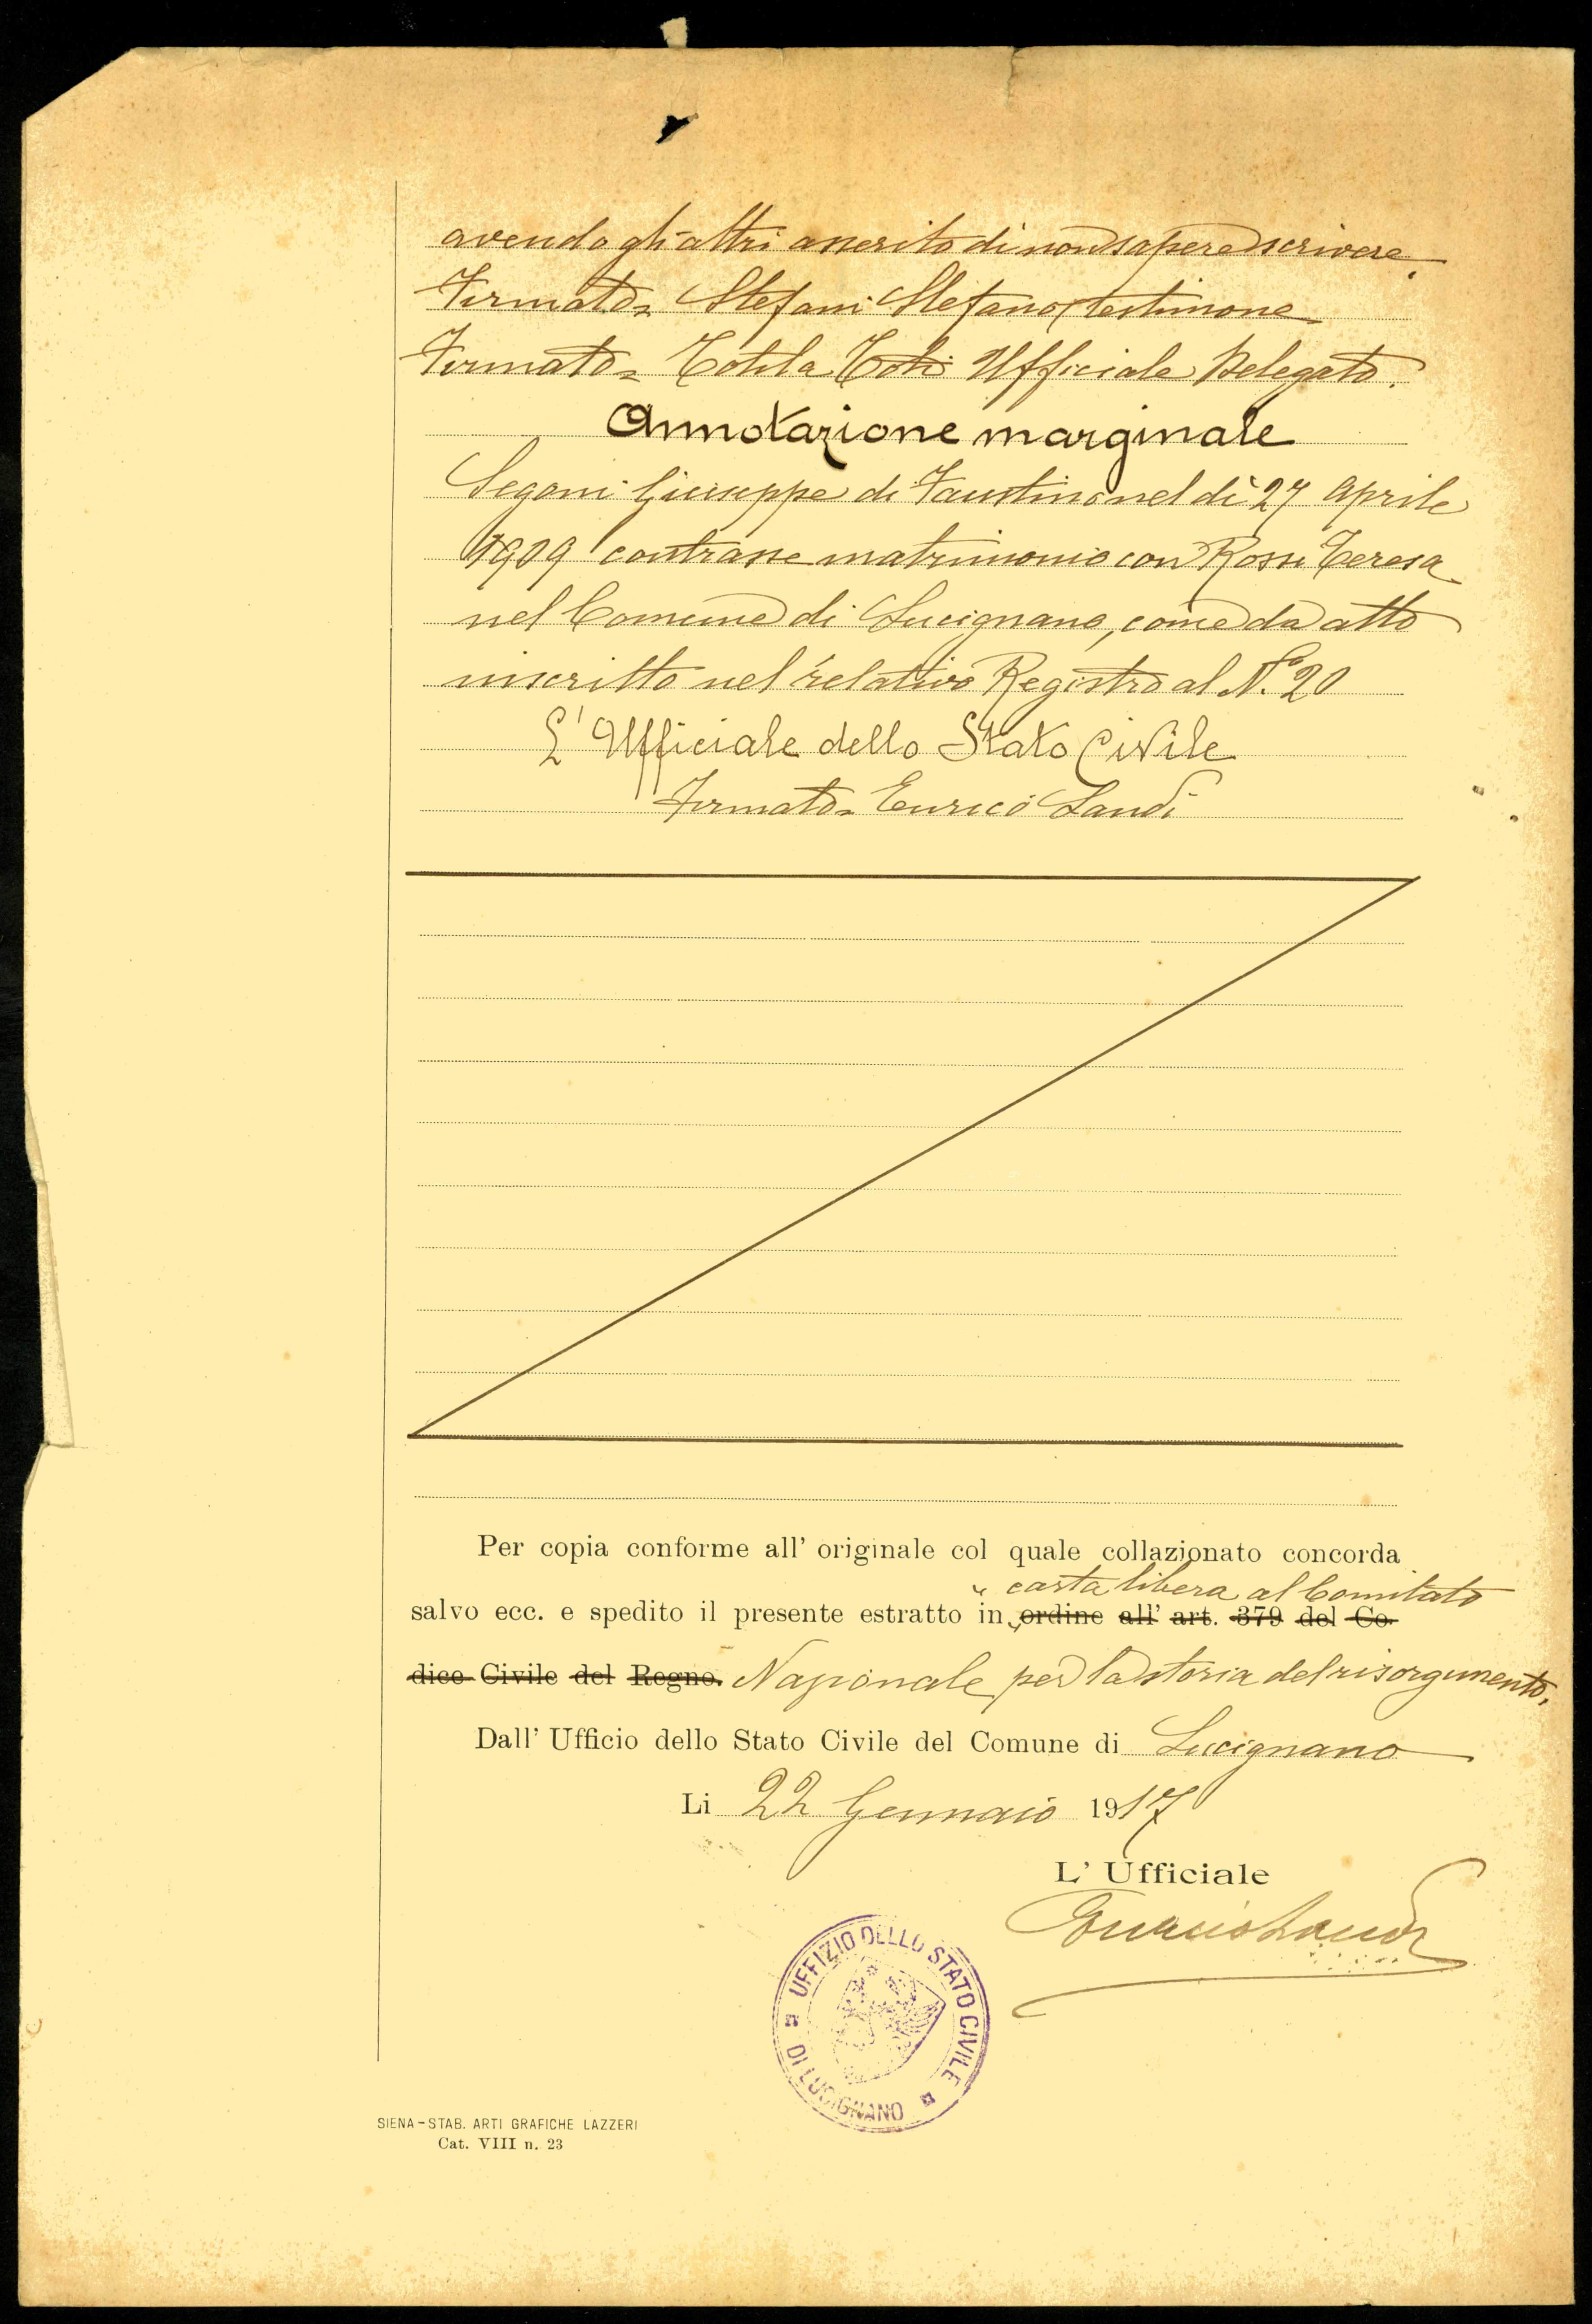 avendo gli altri asserito di non sapere scrivere.
Firmato= Stefani Stefano testimone
Firmato= Totila Toti Ufficiale Delegato.
Annotazione marginale
Segoni Giuseppe di Faustino nel dì 27 Aprile
1909 contrasse matrimonio con Rossi Teresa
nel Comune di Lucignano, come da atto
inscritto nel relativo Registro al N.º 20
L'Ufficiale dello Stato Civile
Firmato= Enrico Landi
Per copia conforme all' originale col quale collazionato concorda
carta libera al Comitato
salvo ecc. e spedito il presente estratto in ordine all' art. 379 del Co-
dice Civile del Regno. Nazionale per la storia del risorgimento.
Dall' Ufficio dello Stato Civile del Comune di Lucignano
Li 22 Gennaio 1917
L' Ufficiale
Enrico Landi
UFFIZIO DELLO STATO CIVILE
DI LUCIGNANO
SIENA - STAB. ARTI GRAFICHE LAZZERI
Cat. VIII n. 23